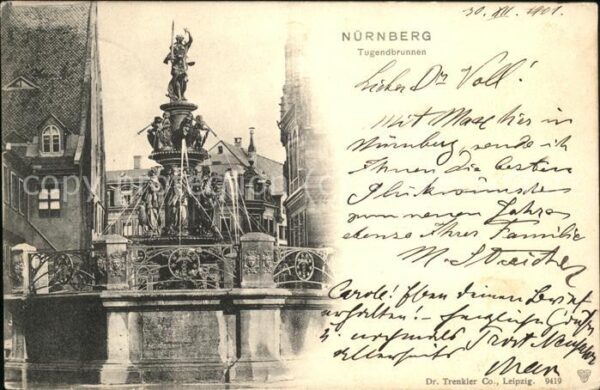 30. XII. 1901.
NÜRNBERG
Tugendbrunnen
Lieber Dr Voll!
Mit Max hier in
Nürnberg, sende ich
Ihnen die besten
Glückwünsche
zum neuen Jahre
ebenso Ihrer Familie
M. Streicher
Carole! Eben deinen Brief
erhalten! – herzliche Grüße
& nochmals Prost Neujahr
allerseits
Max
Dr. Trenkler Co., Leipzig. 9419
copyright